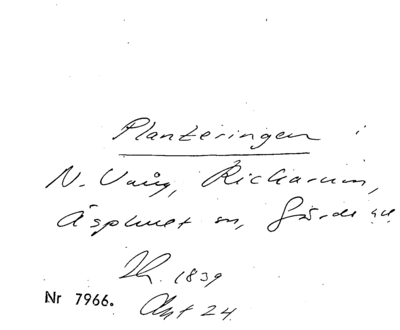 Planteringen i
N. Vång, Richarum,
Äsphult m,
1839
Nr 7966. Akt 24